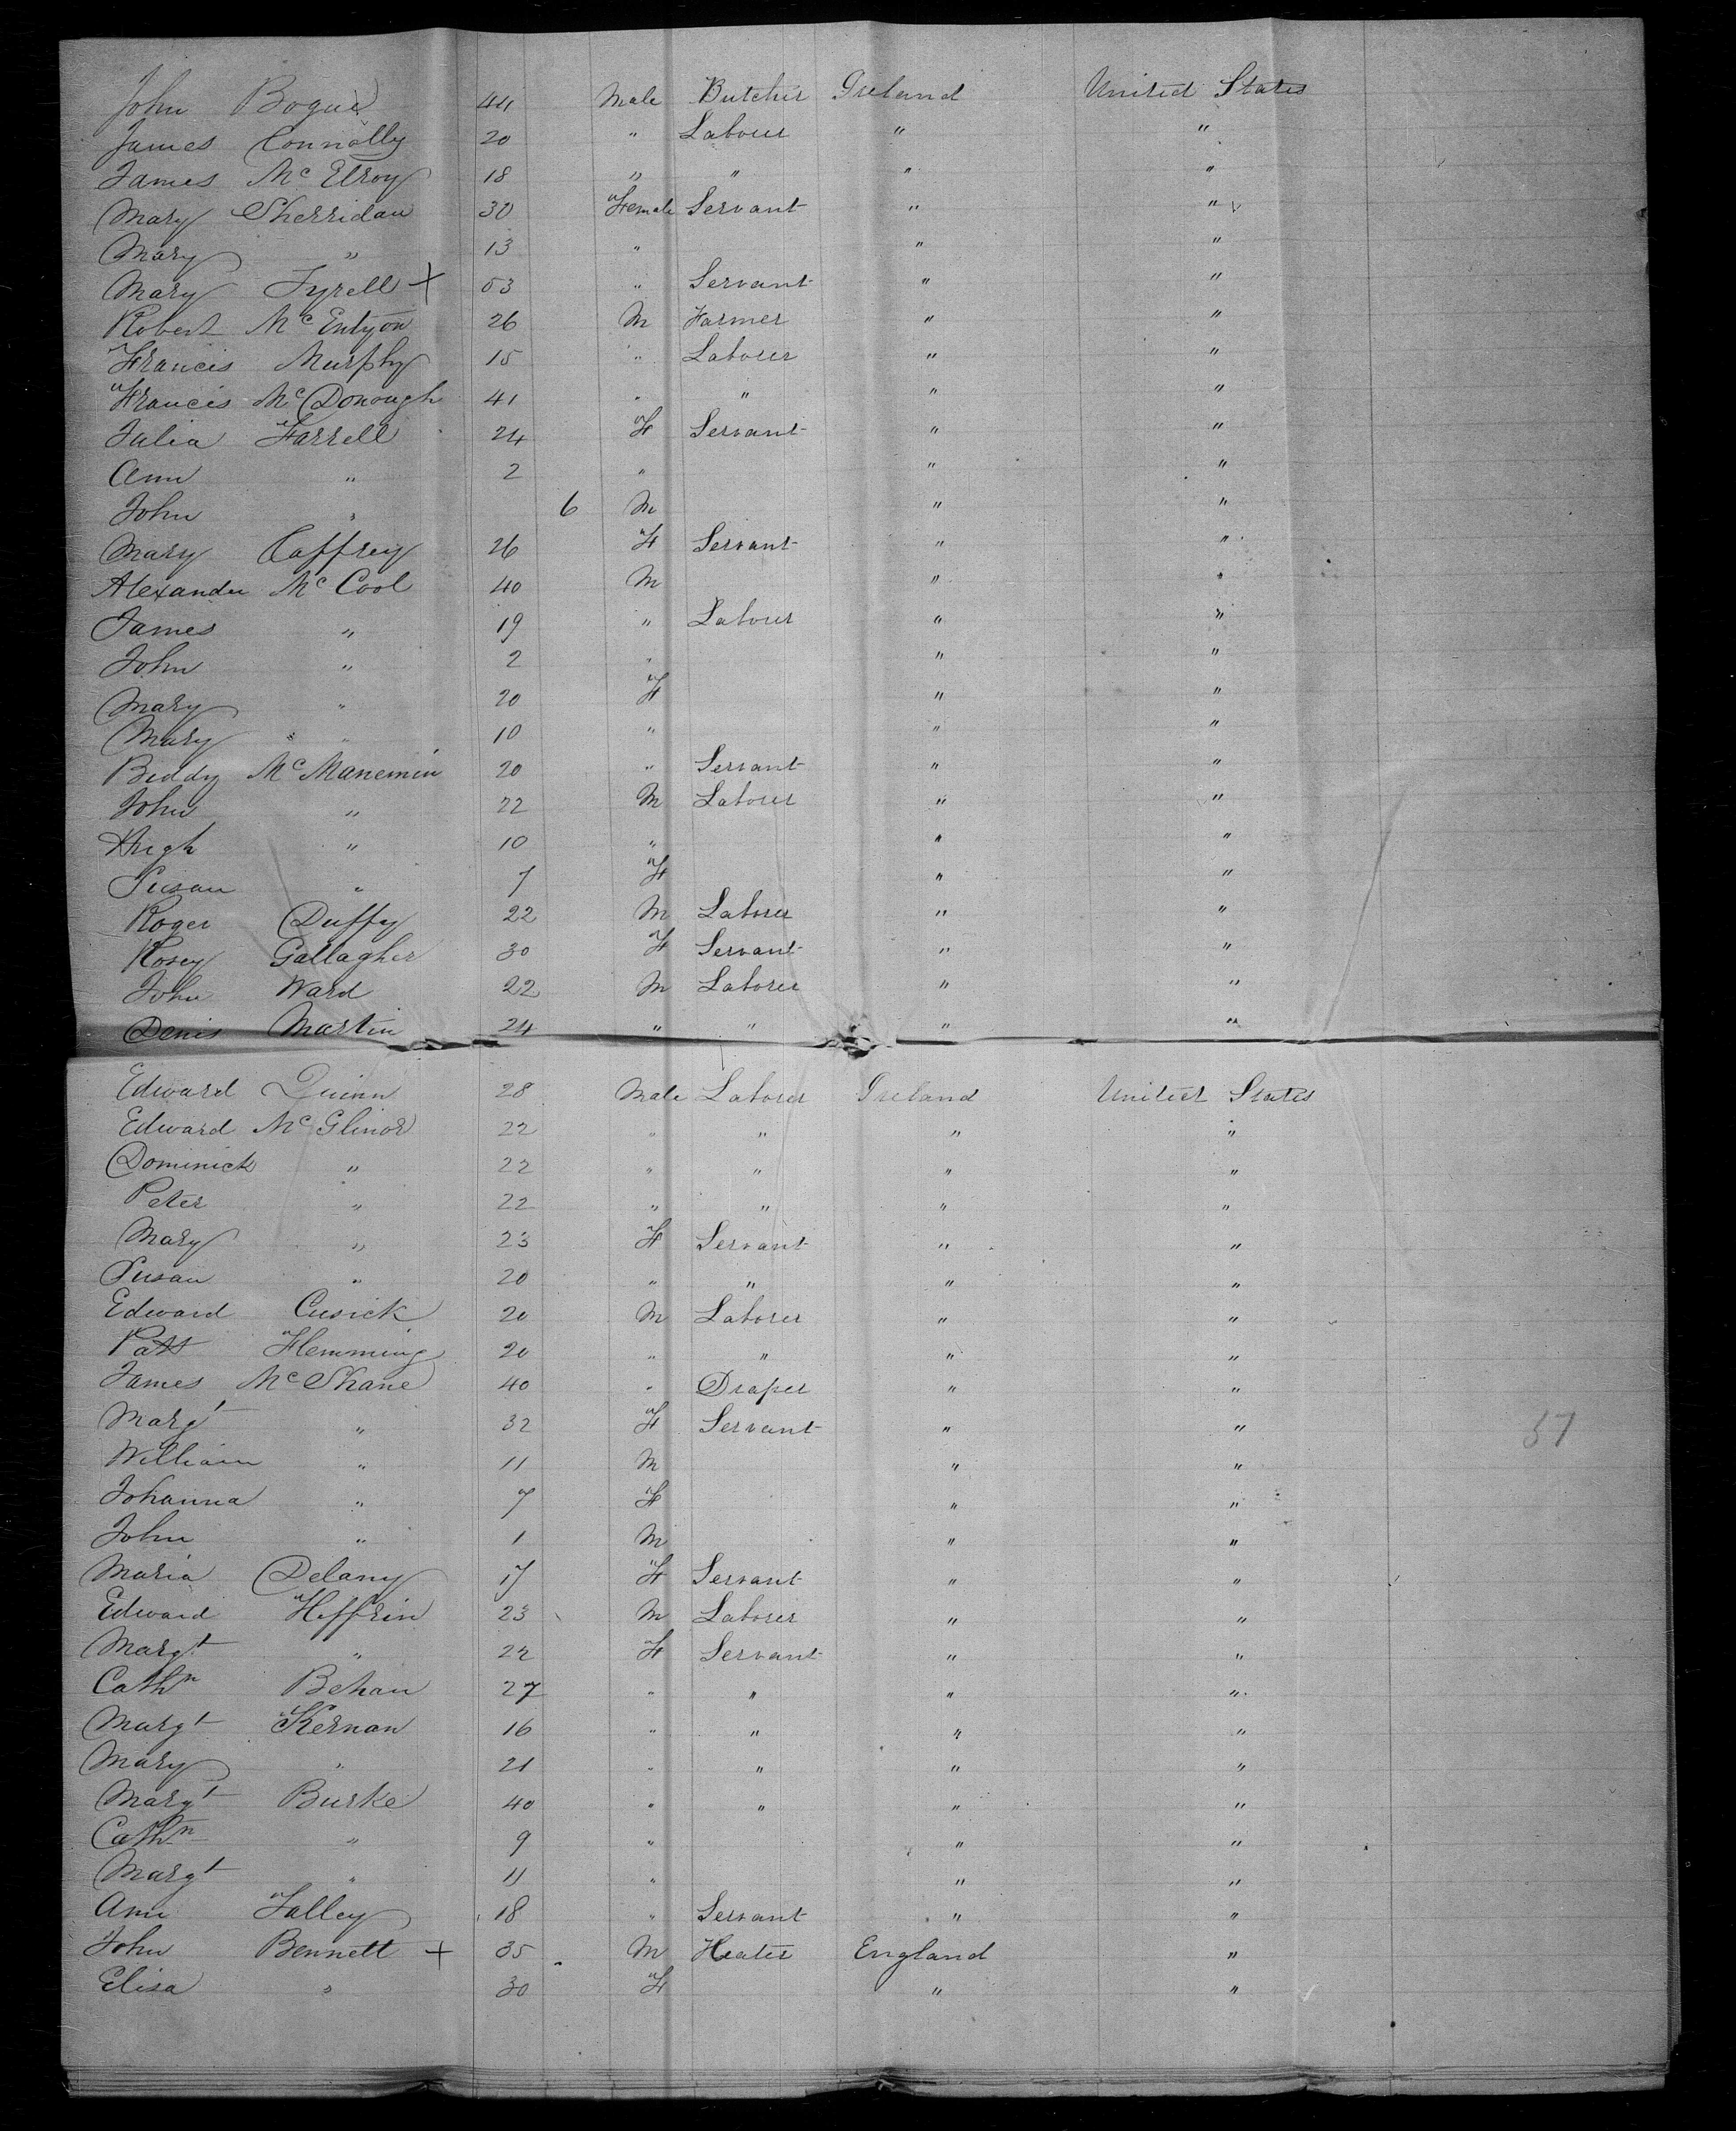 John Bogue 44 Male Butcher Ireland United States
James Connolly 20 " Laborer " "
James Mc Elroy 18 " " " "
Mary Sherridan 30 Female Servant " "
Mary " 13 " " "
Mary Tyrell + 53 " Servant " "
Robert Mc Entyon 26 M Farmer " "
Francis Murphy 15 " Laborer " "
Francis Mc Donough 41 " " " "
Julia Farrell 24 F Servant " "
Ann " 2 " " "
John " 6 M " "
Mary Caffrey 26 F Servant " "
Alexander Mc Cool 40 M " "
James " 19 " Laborer " "
John " 2 " " "
Mary " 20 F " "
Mary " 10 " " "
Biddy Mc Manemin 20 " Servant " "
John " 22 M Laborer " "
Hugh " 10 " " "
Susan " 7 F " "
Roger Duffy 22 M Laborer " "
Rosey Gallagher 30 F Servant " "
John Ward 22 M Laborer " "
Denis Martin 24 " " " "
Edward Quinn 28 Male Laborer Ireland United States
Edward Mc Glinor 22 " " " "
Dominick " 22 " " " "
Peter " 22 " " " "
Mary " 23 F Servant " "
Susan " 20 " " " "
Edward Cusick 20 M Laborer " "
Patt Flemming 20 " " " "
James Mc Shane 40 " Draper " "
Margt " 32 F Servant " "
37
William " 11 M " "
Johanna " 7 F " "
John " 1 M " "
Maria Delany 17 F Servant " "
Edward Heffrin 23 M Laborer " "
Margt " 22 F Servant " "
Cathn Behan 27 " " " "
Margt Kernan 16 " " " "
Mary " 21 " " " "
Margt Burke 40 " " " "
Cathn " 9 " " "
Margt " 11 " " "
Ann Talley 18 " Servant " "
John Bennett + 35 M Heater England "
Elisa " 30 F " "